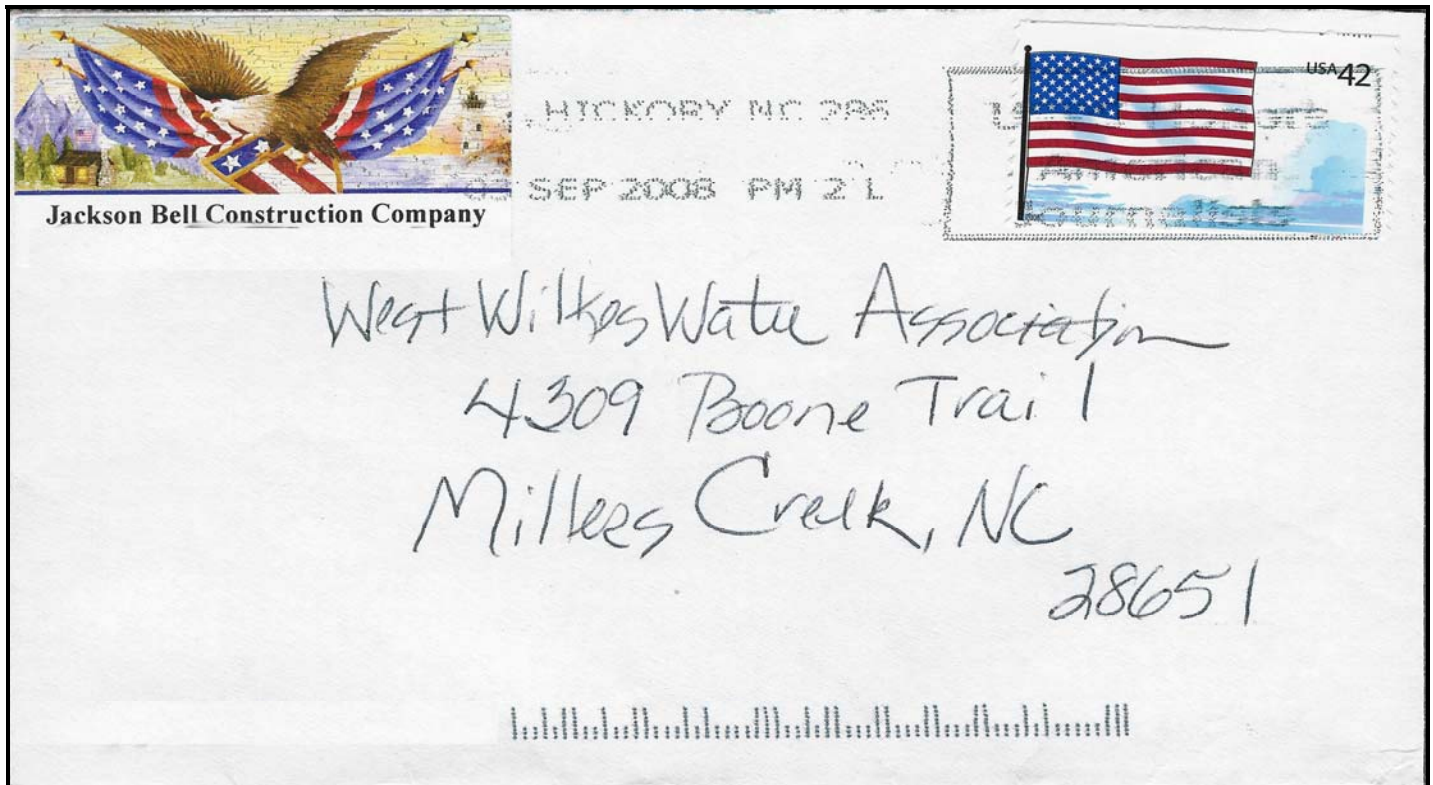 Jackson Bell Construction Company
HICKORY NC 286
SEP 2008 PM 2 L
USA 42
American
Journalists
West Wilkes Water Association
4309 Boone Trail
Millers Creek, NC
28651